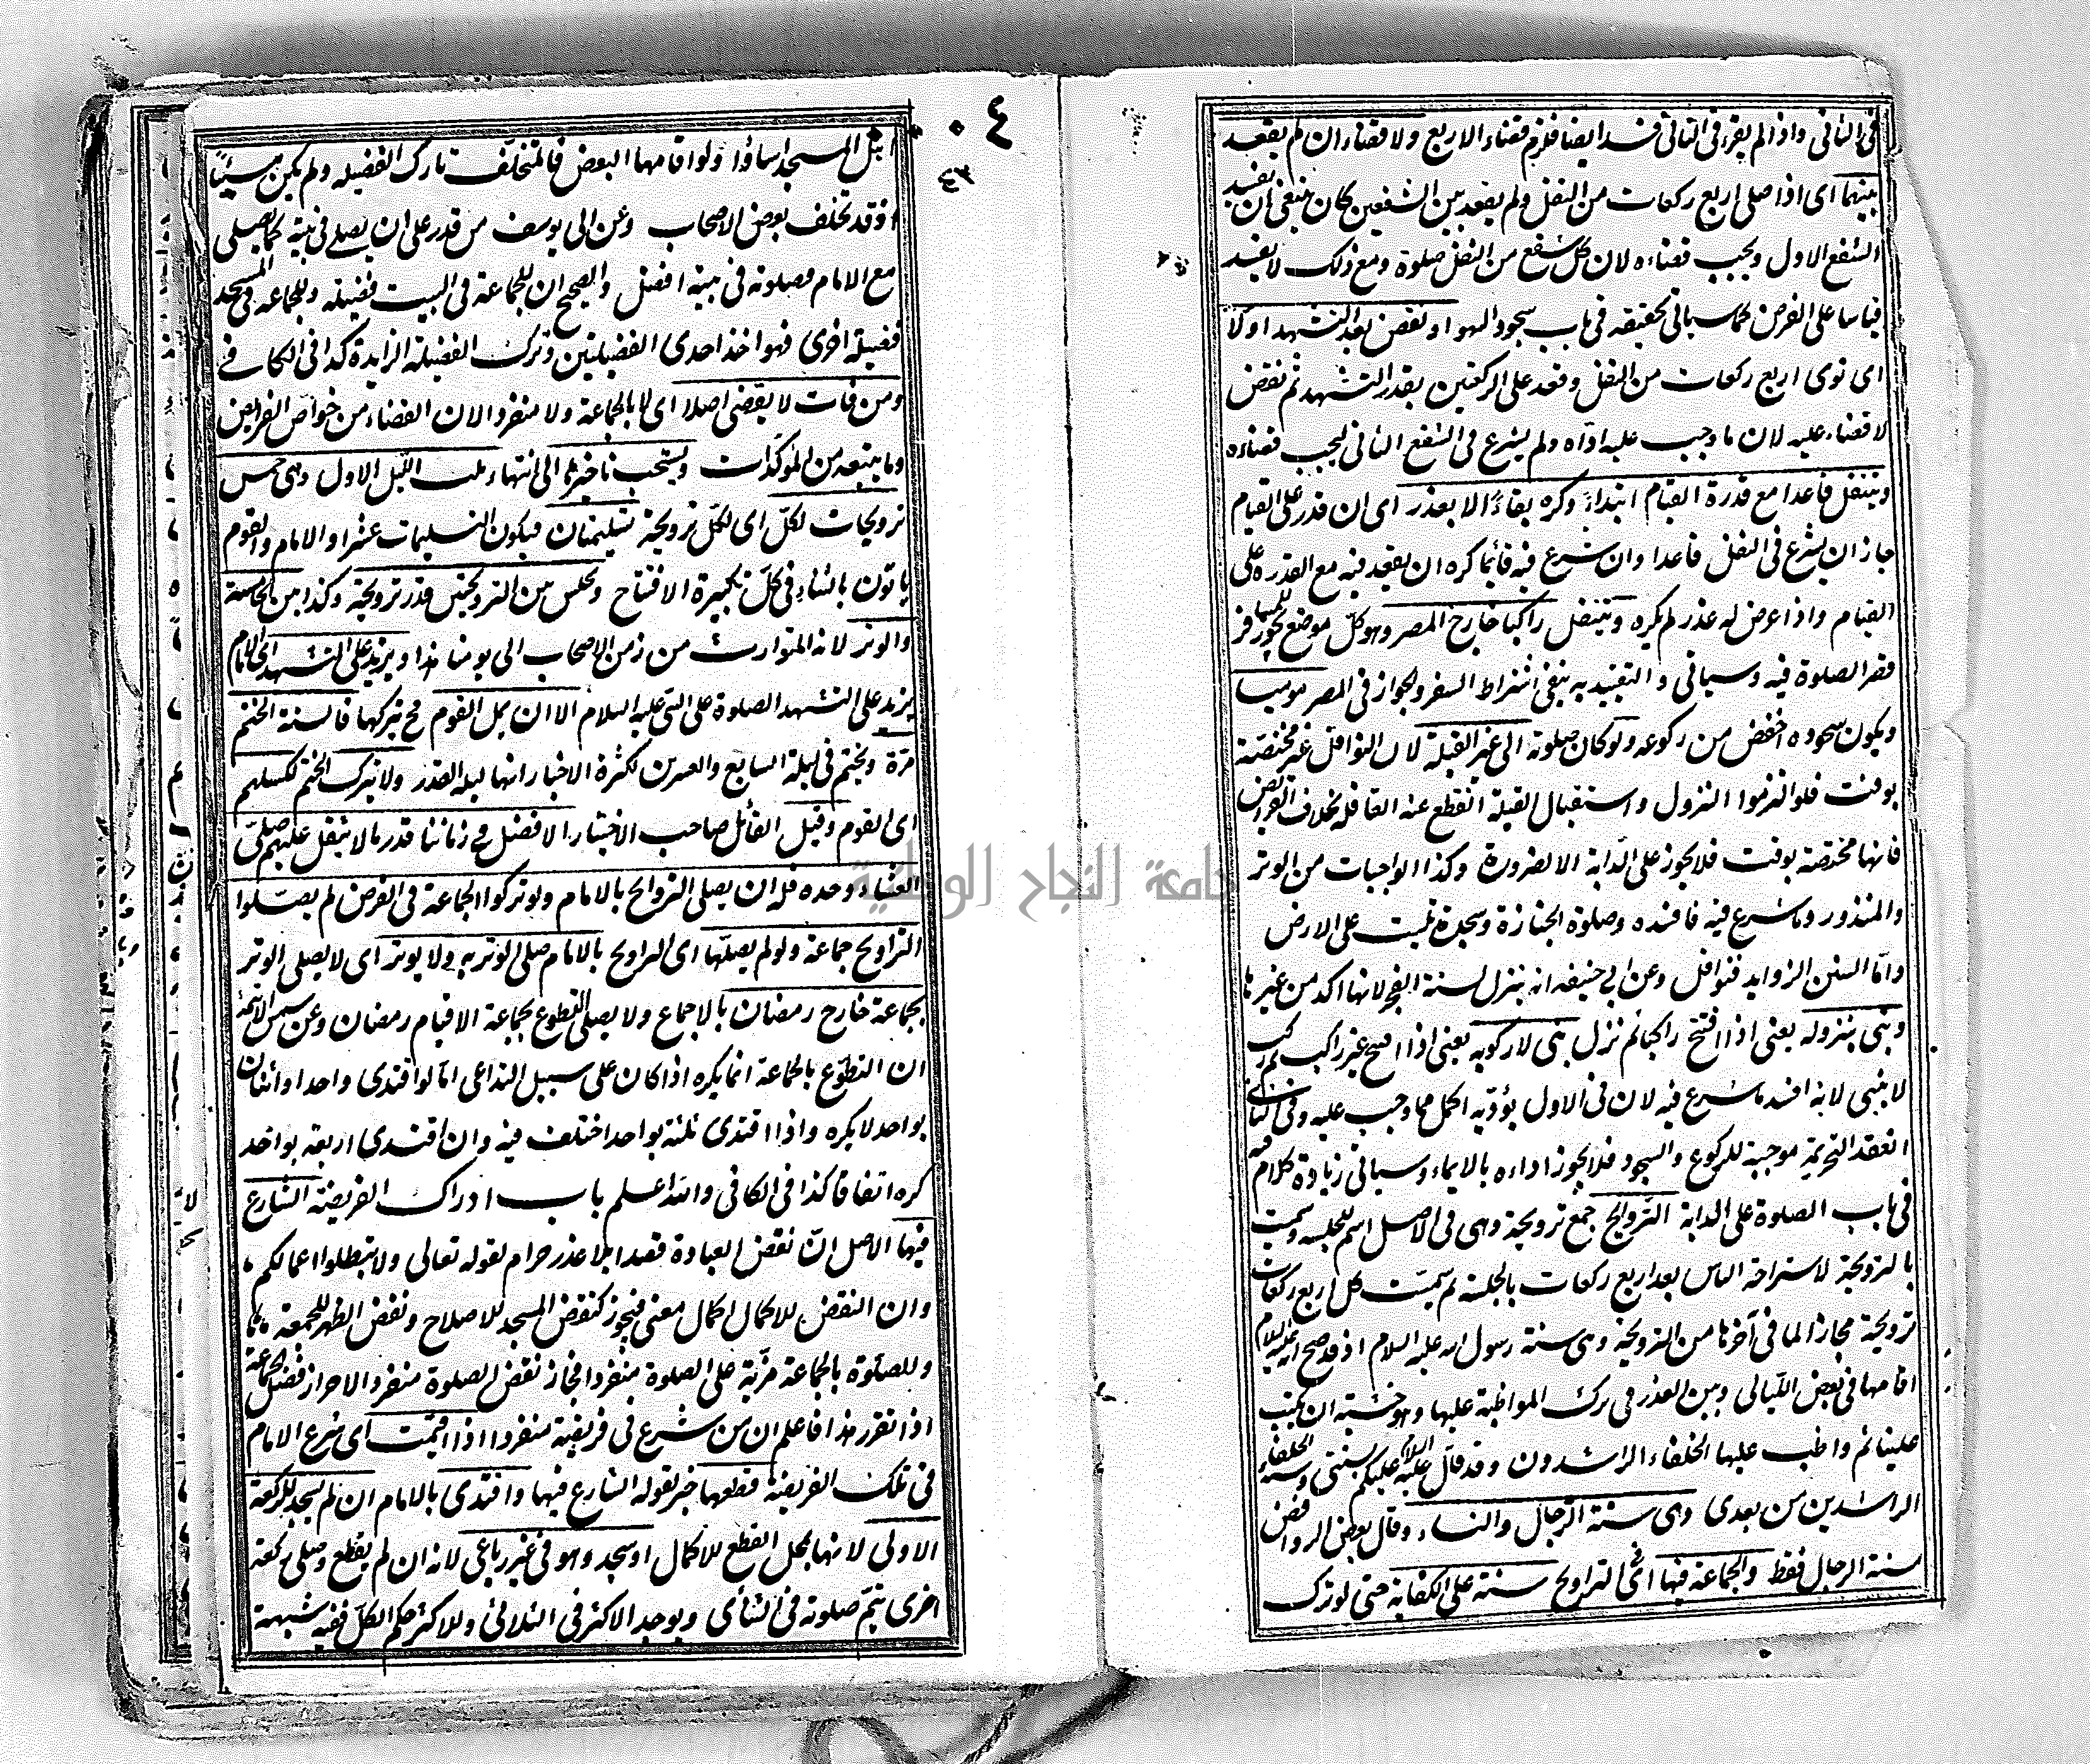 في الثاني واذا لم يقرء في الثاني فسد ايضا فلزم قضاء الاربع ولا قضاء ان لم يقعد
بينهما اى اذا صلى اربع ركعات من النفل ولم يقعد بين الشفعين كان ينبغي ان يفسد
الشفع الاول ويجب قضاءه لان كل شفع من النفل صلوة ومع ذلك لا يفسد
قياسا على الفرض كما سياتي تحقيقه في باب سجود السهو او نقض بعد التشهد اولا
اى نوى اربع ركعات من النفل وقعد على الركعتين بقدر التشهد ثم نقض
لا قضاء عليه لان ما وجب عليه اداه ولم يشرع في الشفع الثاني ليجب قضاءه
ويتنفل قاعدا مع قدرة القيام ابتداءً وكره بقاءً الا بعذر اى ان قدر على القيام
جاز ان يشرع في النفل قاعدا وان شرع فيه قائما كره ان يقعد فيه مع القدرة على
القيام واذا عرض له عذر لم يكره ويتنفل راكبا خارج المصر وهو كل موضع يجوز للمسافر
قصر الصلوة فيه وسياتي والتقييد به ينفي اشتراط السفر والجواز في المصر موميا
ويكون سجوده اخفض من ركوعه ولو كان صلوته الى غير القبلة لان النوافل غير مختصة
بوقت فلو التزموا النزول واستقبال القبلة انقطع عنه القافلة بخلاف الفرائض
فانها مختصة بوقت فلا يجوز على الدابة الا لضرورة وكذا الواجبات من الوتر
والمنذور وما شرع فيه فافسده وصلوة الجنازة وسجدة تليت على الارض
واما السنن الزوايد فنوافل وعن ابى حنيفه انه ينزل لسنة الفجر لانها اكد من غيرها
وبنى بنزوله يعنى اذا افتتح راكبا ثم نزل بنى لا ركوبه يعنى اذا افتتح غير راكب ثم ركب
لا يبنى لانه افسد ما شرع فيه لان في الاول يؤديه اكمل مما وجب عليه وفي الثاني
انعقد التحريمة موجبة للركوع والسجود فلا يجوز اداءه بالايماء وسياتي زيادة كلام فيه
في باب الصلوة على الدابة التراويح جمع ترويحة وهى في الاصل اسم للجلسة وسميت
بالترويحة لاستراحة الناس بعد اربع ركعات بالجلسة ثم سميت كل اربع ركعات
ترويحة مجازا لما في آخرها من الترويحة وهى سنة رسول الله عليه السلام اذ قد صح انه عليه السلام
اقامها في بعض الليالى وبين العذر في ترك المواظبة عليها وهو خشية ان يكتب
علينا ثم واظب عليها الخلفاء الراشدون وقد قال عليه السلام عليكم بسنتي وسنة الخلفاء
الراشدين من بعدى وهى سنة الرجال والنساء وقال بعض الروافض
سنة الرجال فقط والجماعة فيها اى التراويح سنة على الكفاية حتى لو ترك
٤٠
٤٣
اهل المسجد اساؤا ولو اقامها البعض فالمتخلف تارك الفضيلة ولم يكن مسيئا
اذ قد تخلف بعض الاصحاب وعن ابى يوسف من قدر على ان يصلى في بيته كما يصلى
مع الامام فصلوته في بيته افضل والصحيح ان للجماعة في البيت فضيلة وللجماعة في المسجد
فضيلة اخرى فهو اخذ احدى الفضيلتين وترك الفضيلة الزايدة كذا في الكافي
ومن فات لا يقضى اصلا اى لا بالجماعة ولا منفردا لان القضاء من خواص الفرايض
وما يتبعه من المؤكدات ويستحب تاخيرها الى انتهاء ثلث الليل الاول وهى خمس
ترويحات لكل اى لكل ترويحة تسليمتان فيكون التسليمات عشرا والامام والقوم
ياتون بالثناء في كل تكبيرة الافتتاح ويجلس بين الترويحتين قدر ترويحة وكذا بين الخامسة
والوتر لانه المتوارث من زمن الاصحاب الى يومنا هذا ويزيد على التشهد اى الامام
يزيد على التشهد الصلوة على النبي عليه السلام الا ان يمل القوم فح يتركها فالسنة الختم
مرة ويختم في ليلة السابع والعشرين لكثرة الاخبار انها ليلة القدر ولا يترك الختم لكسلهم
اى القوم وقيل القائل صاحب الاختيار الافضل في زماننا قدر ما لا يثقل عليهم صلى
العشاء وحده فله ان يصلى التراويح بالامام ولو تركوا الجماعة في الفرض لم يصلوا
التراويح جماعة ولو لم يصلها اى التراويح بالامام صلى الوتر به ولا يوتر اى لا يصلى الوتر
بجماعة خارج رمضان بالاجماع ولا يصلى التطوع بجماعة الا قيام رمضان وعن شمس الائمة
ان التطوع بالجماعة انما يكره اذا كان على سبيل التداعى اما لو اقتدى واحد او اثنان
بواحد لا يكره واذا اقتدى ثلثة بواحد اختلف فيه وان اقتدى اربعة بواحد
كره اتفاقا كذا في الكافي والله اعلم باب ادراك الفريضة الشارع
فيها الاصل ان نقض العبادة قصدا بلا عذر حرام لقوله تعالى ولا تبطلوا اعمالكم
وان النقض للاكمال اكمال معنى فيجوز كنقض المسجد للاصلاح ونقض الظهر للجمعة
وللصلوة بالجماعة مزية على الصلوة منفردا فجاز نقض الصلوة منفردا لاحراز فضل الجماعة
اذا تقرر هذا فاعلم ان من شرع في فريضة منفردا اذا اقيمت اى شرع الامام
في تلك الفريضة قطعها خبر لقوله الشارع فيها واقتدى بالامام ان لم يسجد للركعة
الاولى لانها بمحل القطع للاكمال او سجد وهو في غير رباعى لانه ان لم يقطع وصلى ركعة
اخرى يتم صلوته في الثنائى ويوجد الاكثر في الثلاثى وللاكثر حكم الكل ففيه شبهة
جامعة النجاح الوطنية